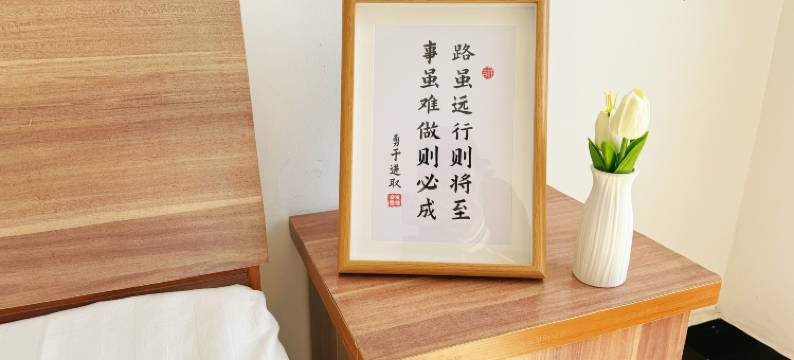 路虽远行则将至
事虽难做则必成
勇于进取